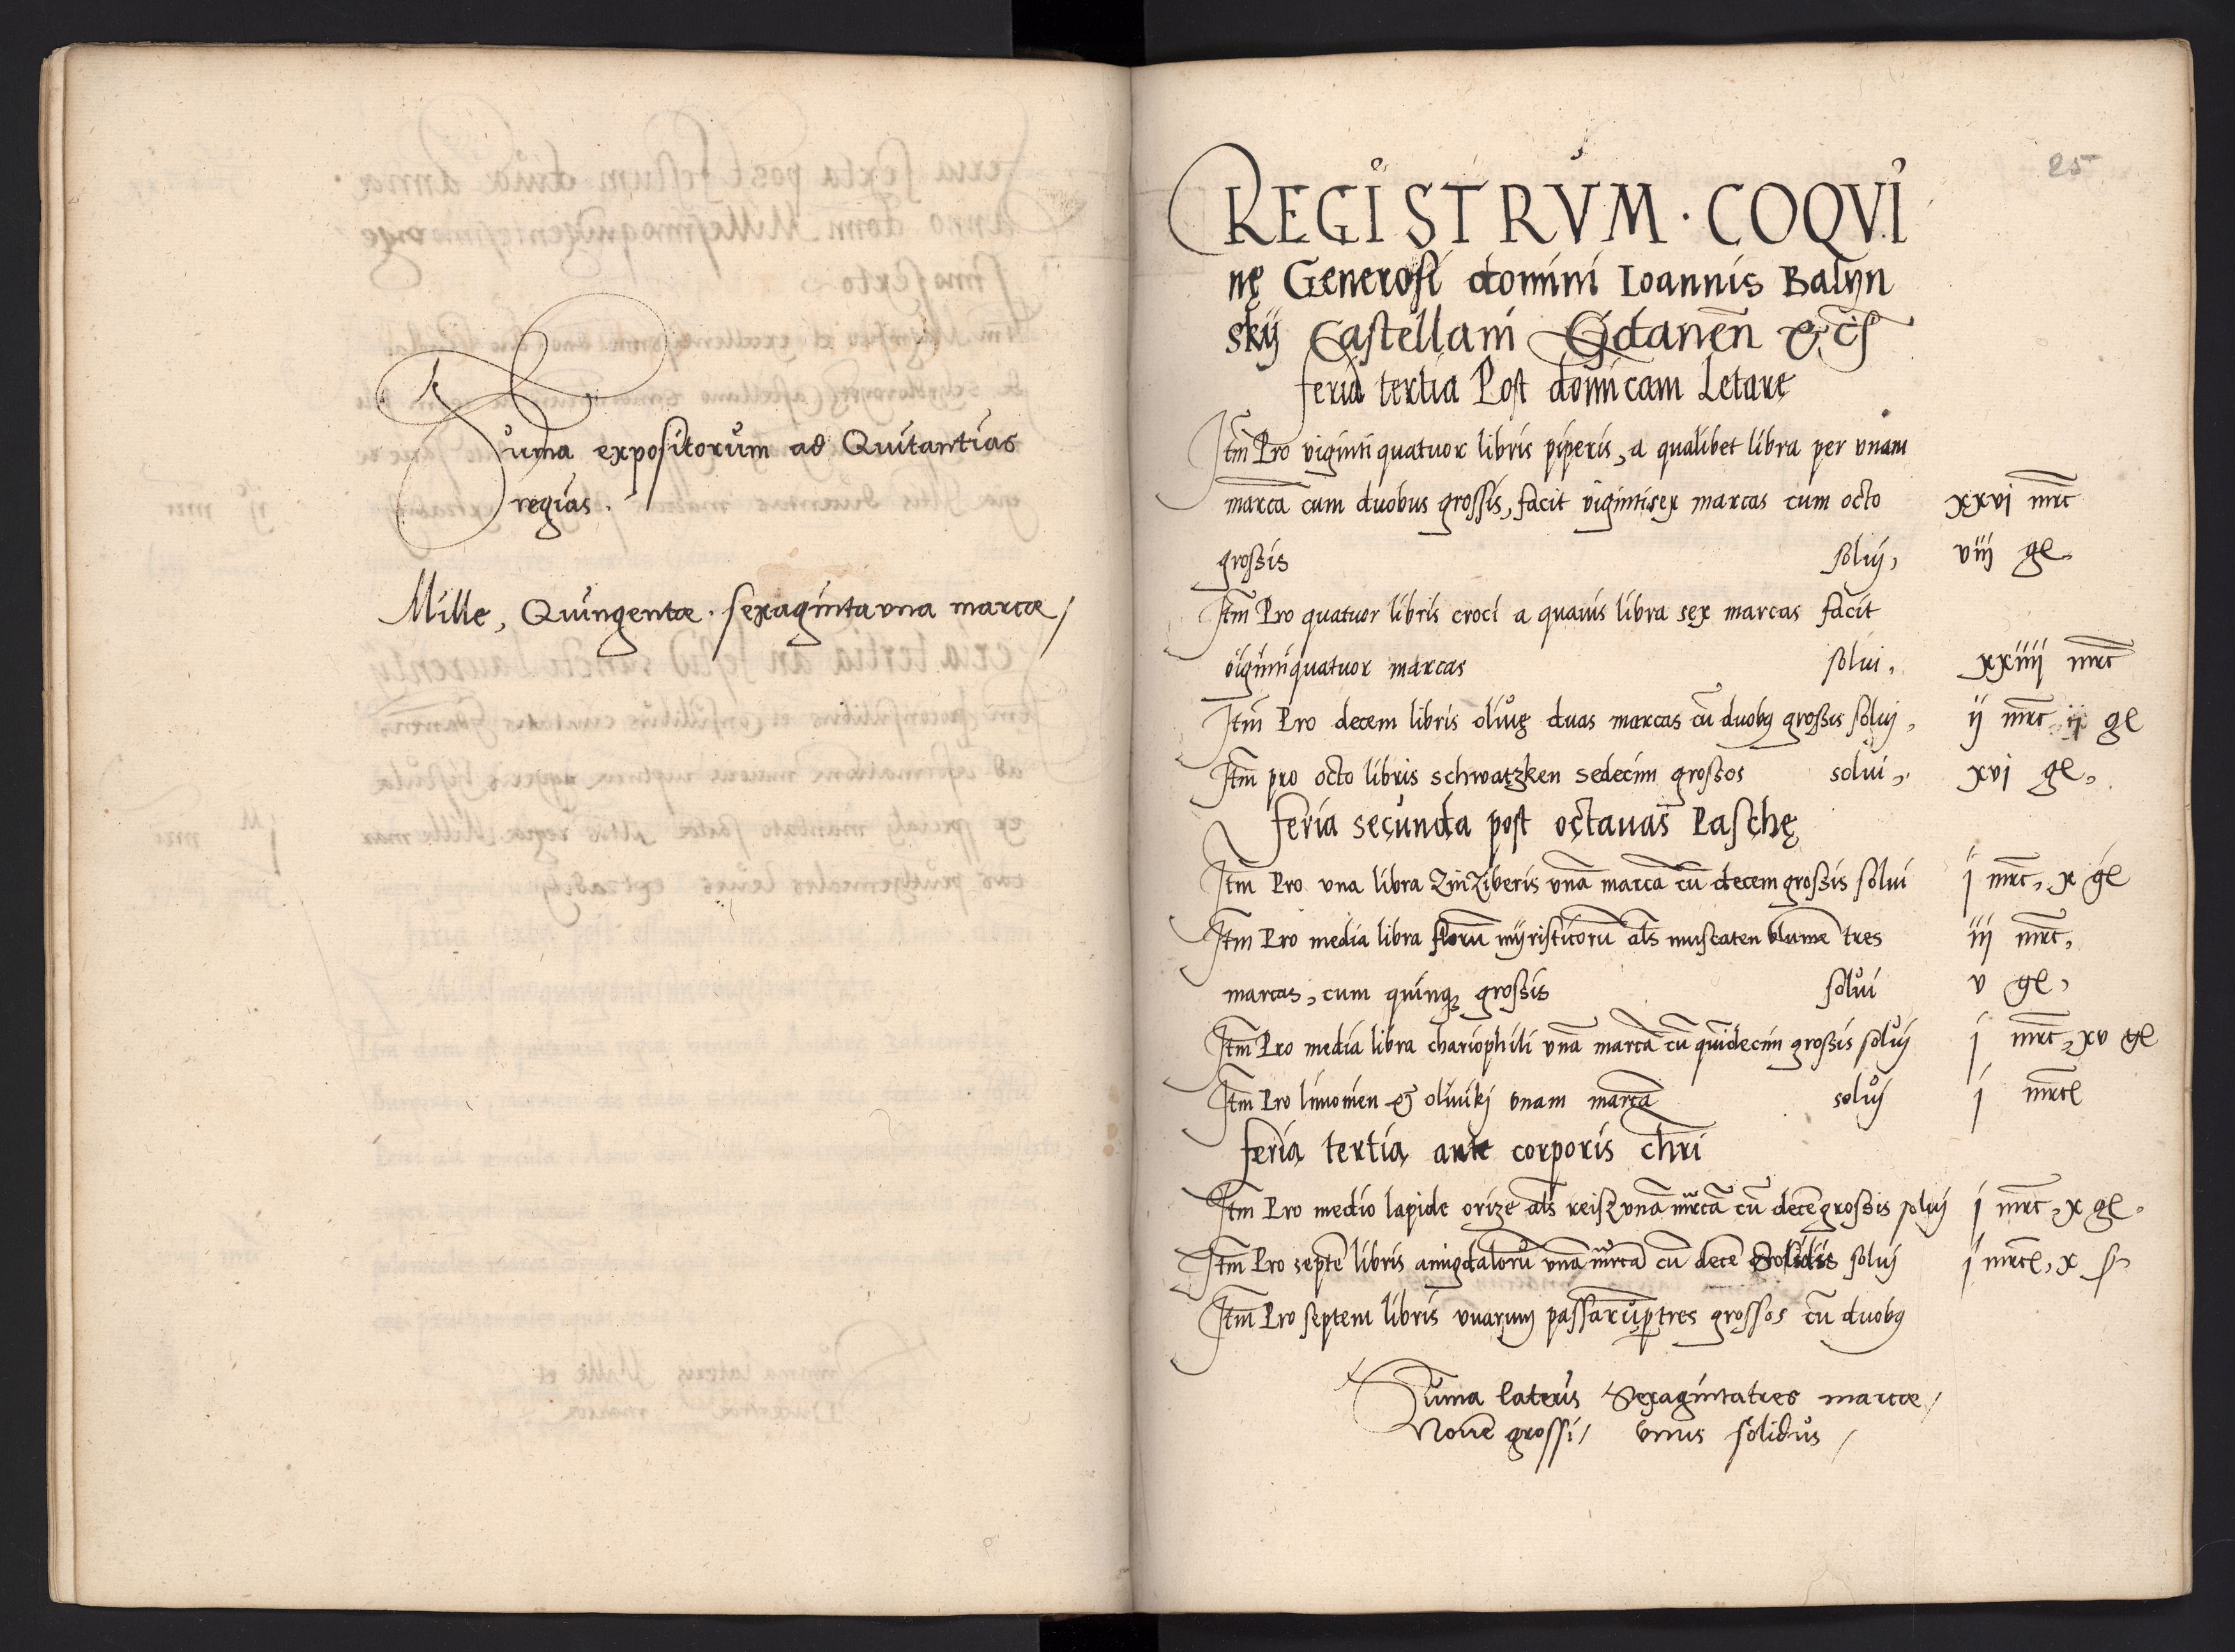 Sum̃a expositorum ad Quitantias
regias.
Mille, Quingentæ. sexagintauna marcæ /
25
REGISTRVM · COQVI
nę Generosi domini Ioannis Balyn
skij Castellani Gdaneñ &c̃
feria tertia Post dom̃icam Letarę
Itm̃ Pro viginti quatuor libris piperis, a qualibet libra per vnam
marcã cum duobus grossis, facit vigintisex marcas cum octo xxvi mrc̃
grossis soluj, viij gl.
Itm̃ Pro quatuor libris croci a quauis libra sex marcas facit
vigintiquatuor marcas solui, xxiiij mrc̃
Itm̃ Pro decem libris oliuę duas marcas cũ duobꝰ grossis soluj, ij mrc̃ ij gl
Itm̃ pro octo libris schwatzken sedecim grossos solui, xvj gl,
feria secunda post octauas Paschę
Itm̃ Pro vna libra Zinziberis vnã marcã cũ decem grossis solui j mrc̃, x gl
Itm̃ Pro media libra florũ myristicorũ als̃ muscaten blumẽ tres iij mrc̃,
marcas, cum quinqꝫ grossis solui v gl,
Itm̃ Pro media libra chariophili vnã marcã cũ quĩdecim grossis soluj j mrc̃, xv gl
Itm̃ Pro limonien & oliuikj vnam marcã soluj j mrc̃
feria tertia ante corporis chr̃i
Itm̃ Pro medio lapide orize als̃ reisz vnã mrcã cũ decẽ grossis soluj j mrc̃, x gl.
Itm̃ Pro septẽ libris amigdalorũ vnã mrcã cũ decẽ solidis soluj j mrc̃, x s
Itm̃ Pro septem libris vuarum passarũ ꝑ tres grossos cũ duobꝰ
Sum̃a lateris Sexagintatres marcæ /
Nouẽ grossi / vnus solidus /